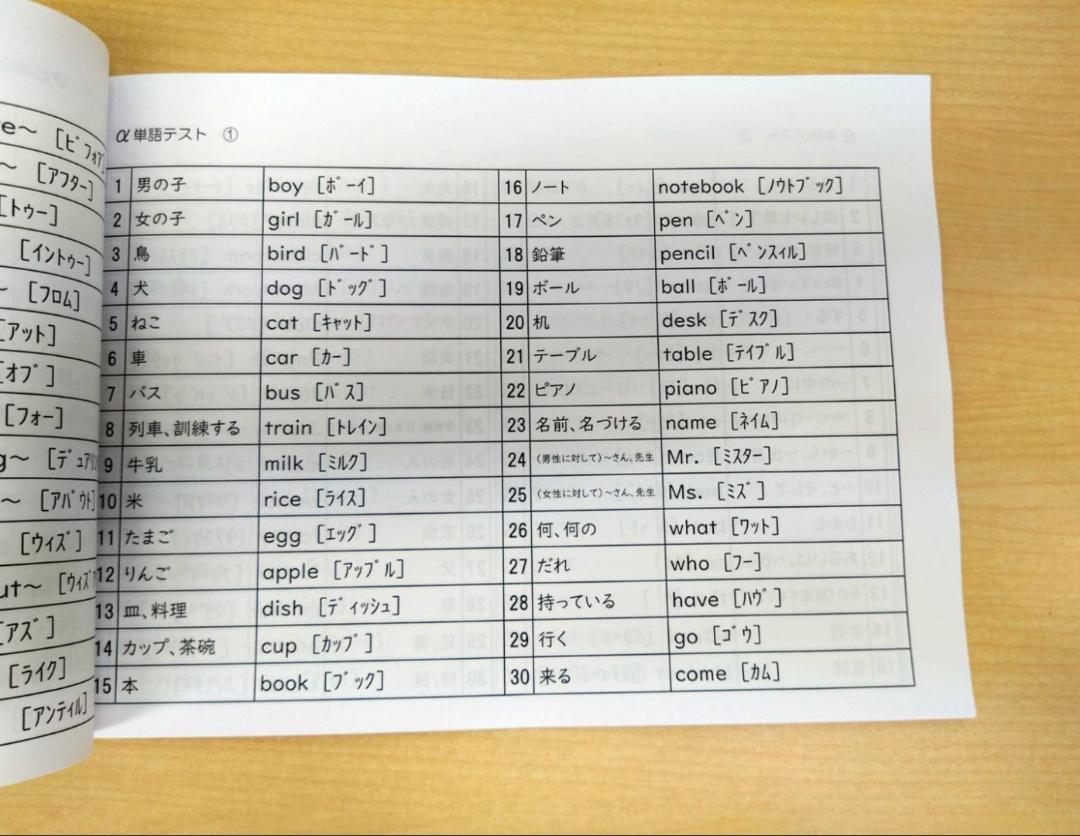 e～ [ﾋﾞﾌｫｱ
～ [ｱﾌﾀｰ]
[ﾄｩｰ]
[ｲﾝﾄｩｰ]
～ [ﾌﾛﾑ]
[ｱｯﾄ]
[ｵﾌﾞ]
[ﾌｫｰ]
g～ [ﾃﾞｭｱﾘﾝ
～ [ｱﾊﾞｳﾄ]
[ｳｨｽﾞ]
ut～ [ｳｨｽﾞ
[ｱｽﾞ]
[ﾗｲｸ]
[ｱﾝﾃｨﾙ]
α単語テスト ①
1 男の子 boy [ﾎﾞｰｲ]
2 女の子 girl [ｶﾞｰﾙ]
3 鳥 bird [ﾊﾞｰﾄﾞ]
4 犬 dog [ﾄﾞｯｸﾞ]
5 ねこ cat [ｷｬｯﾄ]
6 車 car [ｶｰ]
7 バス bus [ﾊﾞｽ]
8 列車、訓練する train [ﾄﾚｲﾝ]
9 牛乳 milk [ﾐﾙｸ]
10 米 rice [ﾗｲｽ]
11 たまご egg [ｴｯｸﾞ]
12 りんご apple [ｱｯﾌﾟﾙ]
13 皿、料理 dish [ﾃﾞｨｯｼｭ]
14 カップ、茶碗 cup [ｶｯﾌﾟ]
15 本 book [ﾌﾞｯｸ]
16 ノート notebook [ﾉｳﾄﾌﾞｯｸ]
17 ペン pen [ﾍﾟﾝ]
18 鉛筆 pencil [ﾍﾟﾝｽｨﾙ]
19 ボール ball [ﾎﾞｰﾙ]
20 机 desk [ﾃﾞｽｸ]
21 テーブル table [ﾃｲﾌﾞﾙ]
22 ピアノ piano [ﾋﾟｱﾉ]
23 名前、名づける name [ﾈｲﾑ]
24 (男性に対して)～さん、先生 Mr. [ﾐｽﾀｰ]
25 (女性に対して)～さん、先生 Ms. [ﾐｽﾞ]
26 何、何の what [ﾜｯﾄ]
27 だれ who [ﾌｰ]
28 持っている have [ﾊｳﾞ]
29 行く go [ｺﾞｳ]
30 来る come [ｶﾑ]